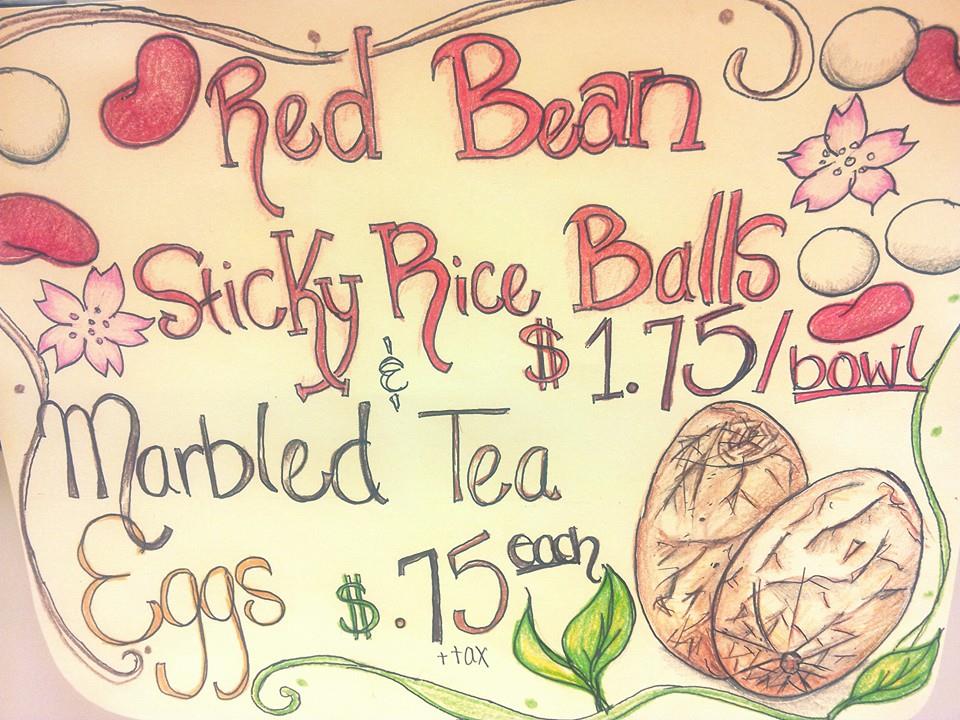 Red Bean
Sticky Rice Balls
& $1.75/bowl
Marbled Tea
Eggs $.75 each
+tax